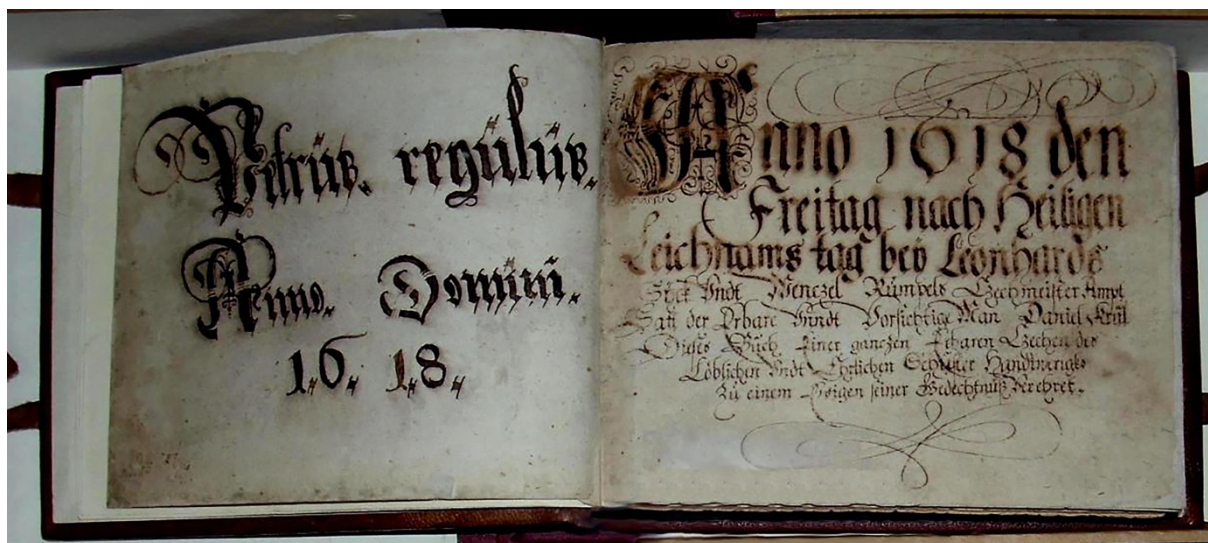 Petrus. regulus.
Anno. Domini.
16. 18.
Anno 1618 den
Freitag nach Heiligen
Leichnams tag beÿ Leonhards
Vndt Wenczel Rümpels Czechmeister Ampt
Hatt der Erbare Vnndt Vorsichtige Man Daniel Krül
Dieses Buch Einer ganczen Erbaren Czechen des
Löblichen Vndt Ehrlichen Schuster Handtwergks
Zu einem seiner Gedechtnuß Verehret.